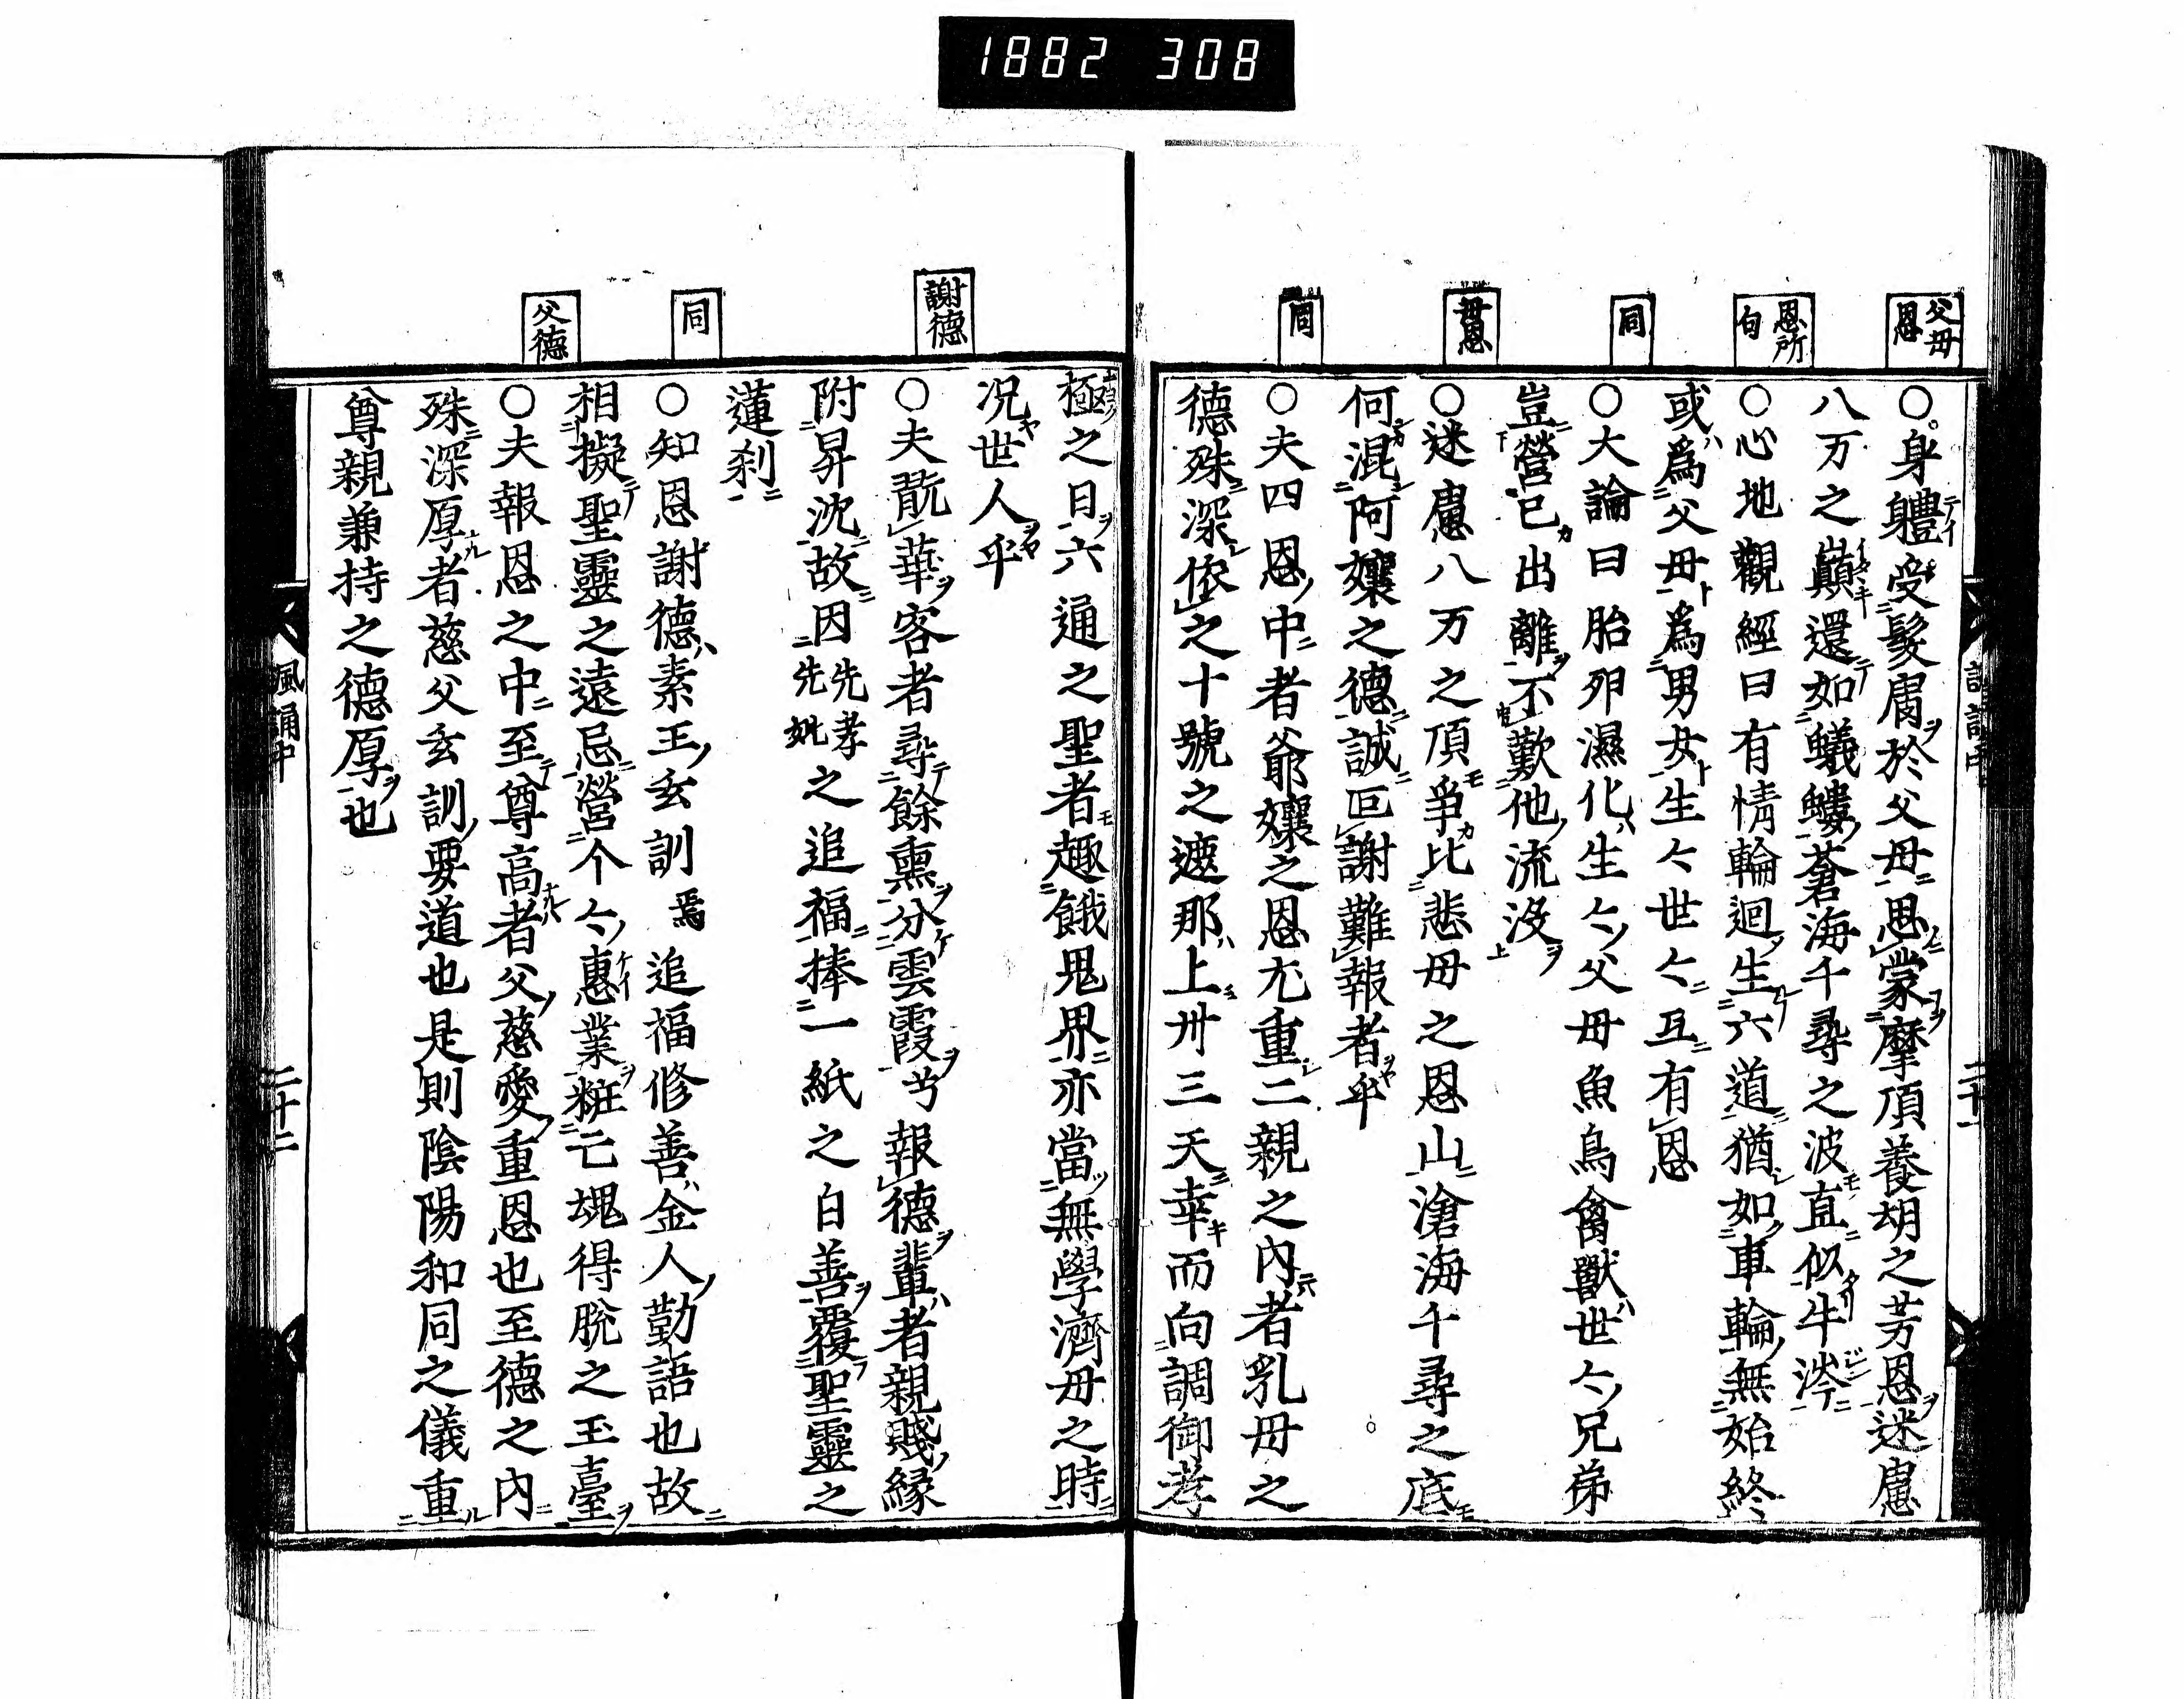 1882 308
父母恩
恩所句
同
母恩
同
○身體受髮膚於父母思蒙摩頂養胡之芳恩迷慮
八万之巓還如蟻螻蒼海千尋之波直似牛涔
○心地觀經曰有情輪迴生六道猶如車輪無始終
或爲父母爲男女生々世々互有恩
○大論曰胎卵濕化生々父母魚鳥禽獸世々兄弟
豈營已出離不歎他流没
○迷慮八万之頂爭比悲母之恩山滄海千尋之底
何混阿孃之德誠叵謝難報者乎
○夫四恩中者爺孃之恩尤重二親之內者乳母之
德殊深依之十號之遮那上卅三天幸而向調御孝
謝德
同
父德
極之日六通之聖者趣餓鬼界亦當無學濟母之時
况世人乎
○夫翫華客者尋餘熏分雲霞兮報德輩者親賤緣
附昇沈故因先考先妣之追福捧一紙之白善覆聖靈之
蓮刹
○知恩謝德素王玄訓焉追福修善金人勤語也故
相擬聖靈之遠忌營个々惠業粧亡魂得脫之玉臺
○夫報恩之中至尊高者父慈愛重恩也至德之內
殊深厚者慈父玄訓要道也是則陰陽和同之儀重
尊親兼持之德厚也
風誦中
二十二